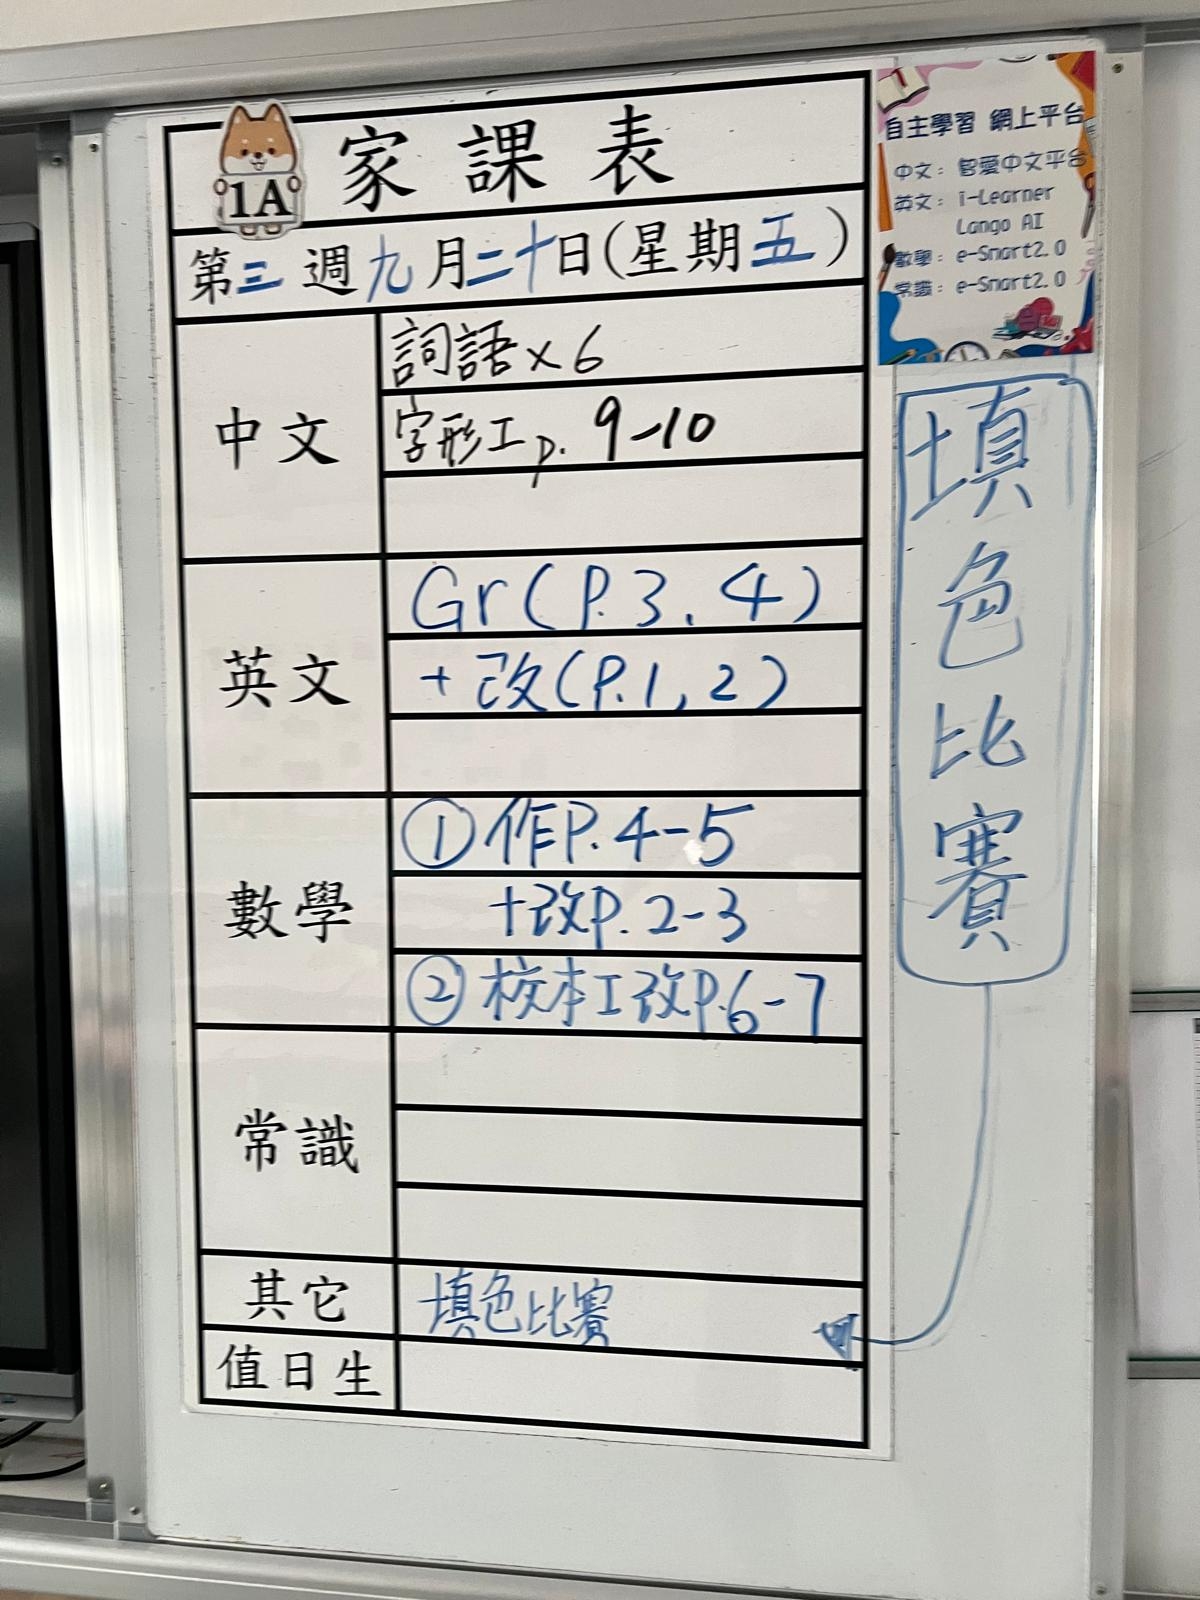 家課表
1A
第三週九月二十日(星期五)
中文
詞語×6
字形工p. 9-10
英文
Gr(P.3, 4)
+改(P.1, 2)
數學
①作P. 4-5
+改P. 2-3
②校本工改P.6-7
常識
其它
填色比賽
值日生
自主學習 網上平台
中文: 智愛中文平台
英文: i-Learner
Lango AI
數學: e-Smart2.0
常識: e-Smart2.0
填色比賽